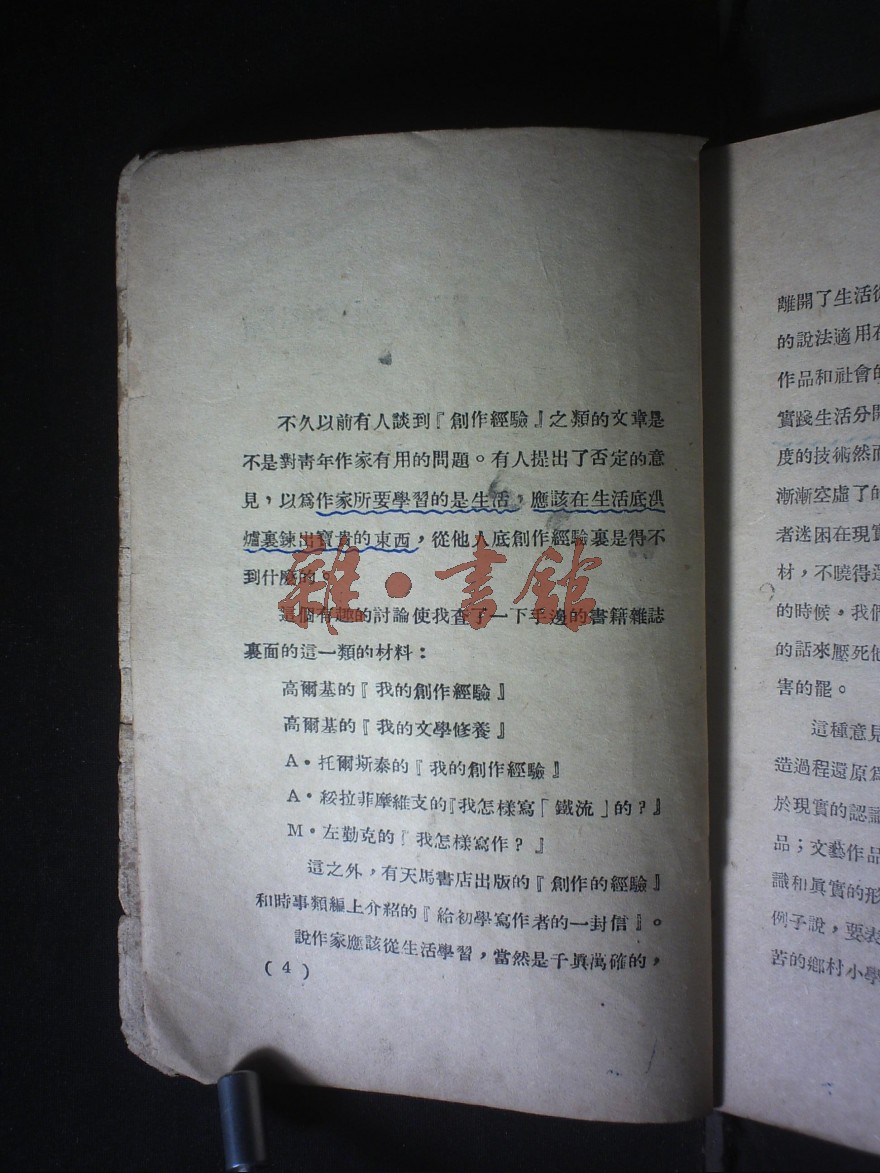 不久以前有人談到『創作經驗』之類的文章是
不是對靑年作家有用的問題。有人提出了否定的意
見，以爲作家所要學習的是生活，應該在生活底洪
爐裏鍊出寶貴的東西，從他人底創作經驗裏是得不
到什麼的。
這個有趣的討論使我查了一下手邊的書籍雜誌
裏面的這一類的材料：
高爾基的『我的創作經驗』
高爾基的『我的文學修養』
A·托爾斯泰的『我的創作經驗』
A·綏拉菲摩維支的『我怎樣寫「鐵流」的？』
M·左勤克的『我怎樣寫作？』
這之外，有天馬書店出版的『創作的經驗』
和時事類編上介紹的『給初學寫作者的一封信』。
說作家應該從生活學習，當然是千眞萬確的，
(4)
雜·書館
離開了生活從
的說法適用在
作品和社會的
實踐生活分開
度的技術然而
漸漸空虛了的
者迷困在現實
材，不曉得選
的時候，我們
的話來壓死他
害的罷。
這種意見
造過程還原爲
於現實的認識
品；文藝作品
識和眞實的形
例子說，要表
苦的鄉村小學